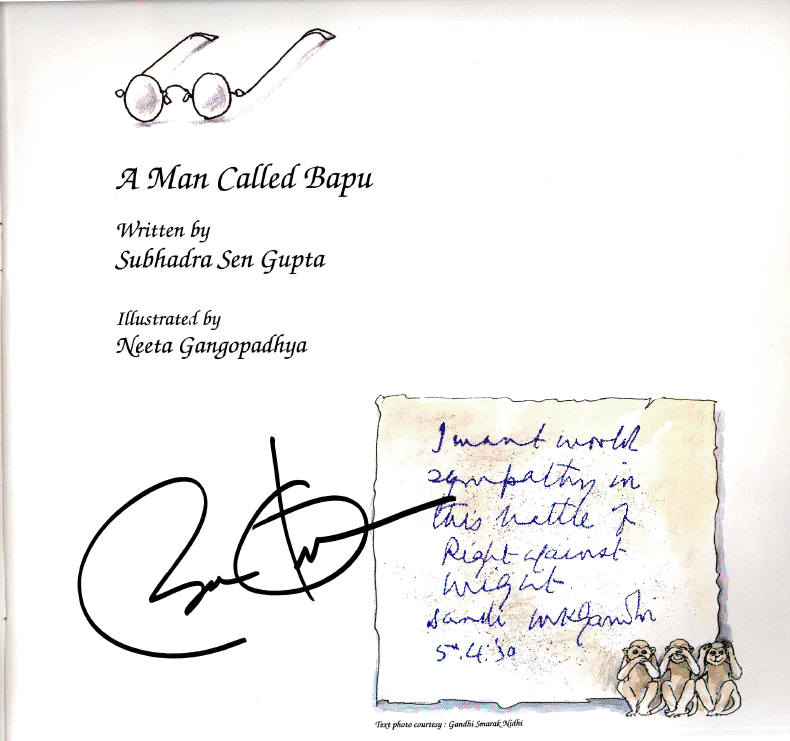 A Man Called Bapu
Written by
Subhadra Sen Gupta
Illustrated by
Neeta Gangopadhya
I want world
sympathy in
this battle of
Right against
might
Dandi MKGandhi
5.4.'30
Text photo courtesy : Gandhi Smarak Nidhi